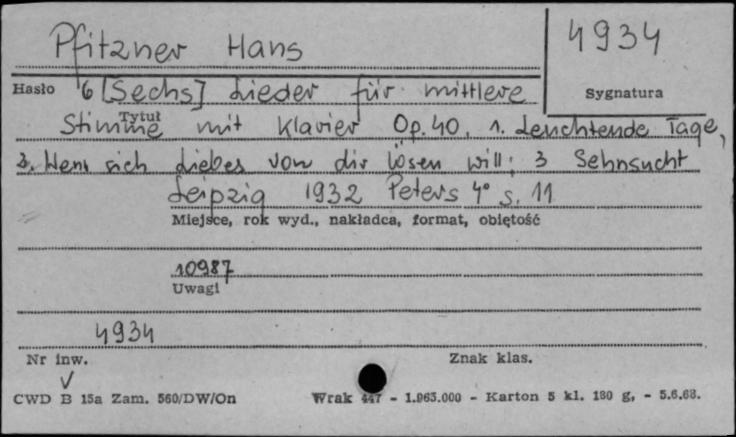 Pfitzner Hans
4934
Hasło 6 [Sechs] Lieder für mittlere
Sygnatura
Tytuł
Stimme mit Klavier Op. 40. 1. Leuchtende Tage,
2. Wenn sich Liebes von dir lösen will; 3 Sehnsucht
Leipzig 1932 Peters 4° s. 11
Miejsce, rok wyd., nakładca, format, objętość
10987
Uwagi
4934
Nr inw.
Znak klas.
CWD B 15a Zam. 560/DW/On
Wrak 447 - 1.963.000 - Karton 5 kl. 180 g, - 5.6.68.